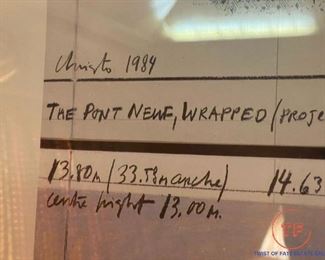 Christo 1984
THE PONT NEUF, WRAPPED (PROJE
13.80m (33.58 manche) 14.63
centre hight 13.00m.
TF
TWIST OF FATE ESTATE SALES